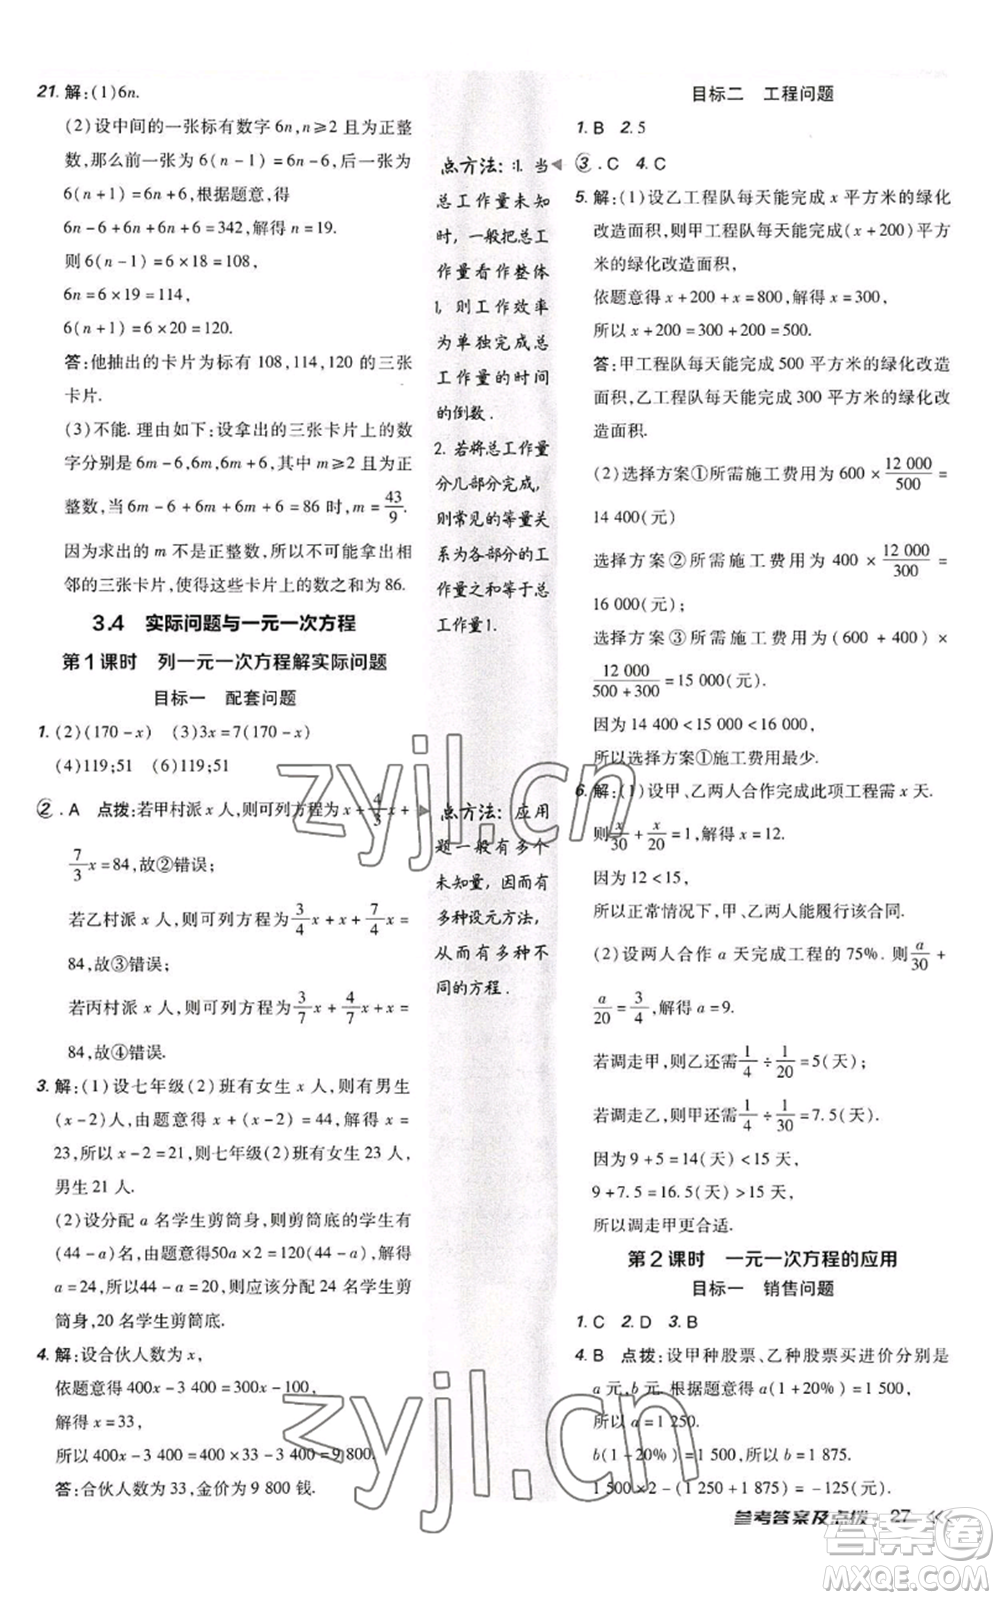 21. 解:(1)6n.
(2)设中间的一张标有数字 6n,n≥2 且为正整
数,那么前一张为 6(n-1)=6n-6,后一张为
6(n+1)=6n+6,根据题意,得
6n-6+6n+6n+6=342,解得 n=19.
则 6(n-1)=6×18=108,
6n=6×19=114,
6(n+1)=6×20=120.
答:他抽出的卡片为标有 108,114,120 的三张
卡片.
(3)不能. 理由如下:设拿出的三张卡片上的数
字分别是 6m-6,6m,6m+6,其中 m≥2 且为正
整数,当 6m-6+6m+6m+6=86 时,m=43/9.
因为求出的 m 不是正整数,所以不能抽出相
邻的三张卡片,使得这些卡片上的数之和为 86.
3.4 实际问题与一元一次方程
第1课时 列一元一次方程解实际问题
目标一 配套问题
1. (2)(170-x) (3)3x=7(170-x)
(4)119;51 (6)119;51
②. A 点拨:若甲村派 x 人,则可列方程为 x+4/3x+
7/3x=84,故②错误;
若乙村派 x 人,则可列方程为3/4x+x+7/4x=
84,故③错误;
若丙村派 x 人,则可列方程为3/7x+4/7x+x=
84,故④错误.
3. 解:(1)设七年级(2)班有女生 x 人,则有男生
(x-2)人,由题意得 x+(x-2)=44,解得 x=
23,所以 x-2=21,则七年级(2)班有女生 23 人,
男生 21 人.
(2)设分配 a 名学生剪筒身,则剪筒底的学生有
(44-a)名,由题意得50a×2=120(44-a),解得
a=24,所以44-a=20,则应分配 24 名学生剪
筒身,20 名学生剪筒底.
4. 解:设合伙人数为 x,
依题意得 400x-3 400=300x-100,
解得 x=33,
所以 400x-3 400=400×33-3 400=9 800.
答:合伙人数为 33,金价为 9 800 钱.
点方法:1. 当
总工作量未知
时,一般把总工
作量看作整体
1,则工作效率
为单独完成总
工作量的时间
的倒数.
2. 若将总工作量
分几部分完成,
则常见的等量关
系为各部分的工
作量之和等于总
工作量1.
点方法:应用
题一般有多个
未知量,因而有
多种设元方法,
从而有多种不
同的方程.
目标二 工程问题
1. B 2. 5
③. C 4. C
5. 解:(1)设乙工程队每天能完成 x 平方米的绿化
改造面积,则甲工程队每天能完成(x+200)平方
米的绿化改造面积,
依题意得 x+200+x=800,解得 x=300,
所以 x+200=300+200=500.
答:甲工程队每天能完成 500 平方米的绿化改造
面积,乙工程队每天能完成 300 平方米的绿化改
造面积.
(2)选择方案①所需施工费用为 600×12 000/500=
14 400(元)
选择方案②所需施工费用为 400×12 000/300=
16 000(元);
选择方案③所需施工费用为(600+400)×
12 000/(500+300)=15 000(元).
因为 14 400<15 000<16 000,
所以选择方案①施工费用最少.
6. 解:(1)设甲、乙两人合作完成此项工程需 x 天.
则x/30+x/20=1,解得 x=12.
因为 12<15,
所以正常情况下,甲、乙两人能履行该合同.
(2)设两人合作 a 天完成工程的 75%. 则a/30+
a/20=3/4,解得 a=9.
若调走甲,则乙还需1/4÷1/20=5(天);
若调走乙,则甲还需1/4÷1/30=7.5(天).
因为 9+5=14(天)<15 天,
9+7.5=16.5(天)>15 天,
所以调走甲更合适.
第2课时 一元一次方程的应用
目标一 销售问题
1. C 2. D 3. B
4. B 点拨:设甲种股票、乙种股票买进价分别是
a 元,b 元. 根据题意得 a(1+20%)=1 500,
所以 a=1 250.
b(1-20%)=1 500,所以 b=1 875.
1 500×2-(1 250+1 875)=-125(元).
参考答案及点拨 27
zyjl.cn
zyjl.cn
答案圈
MXQE.COM